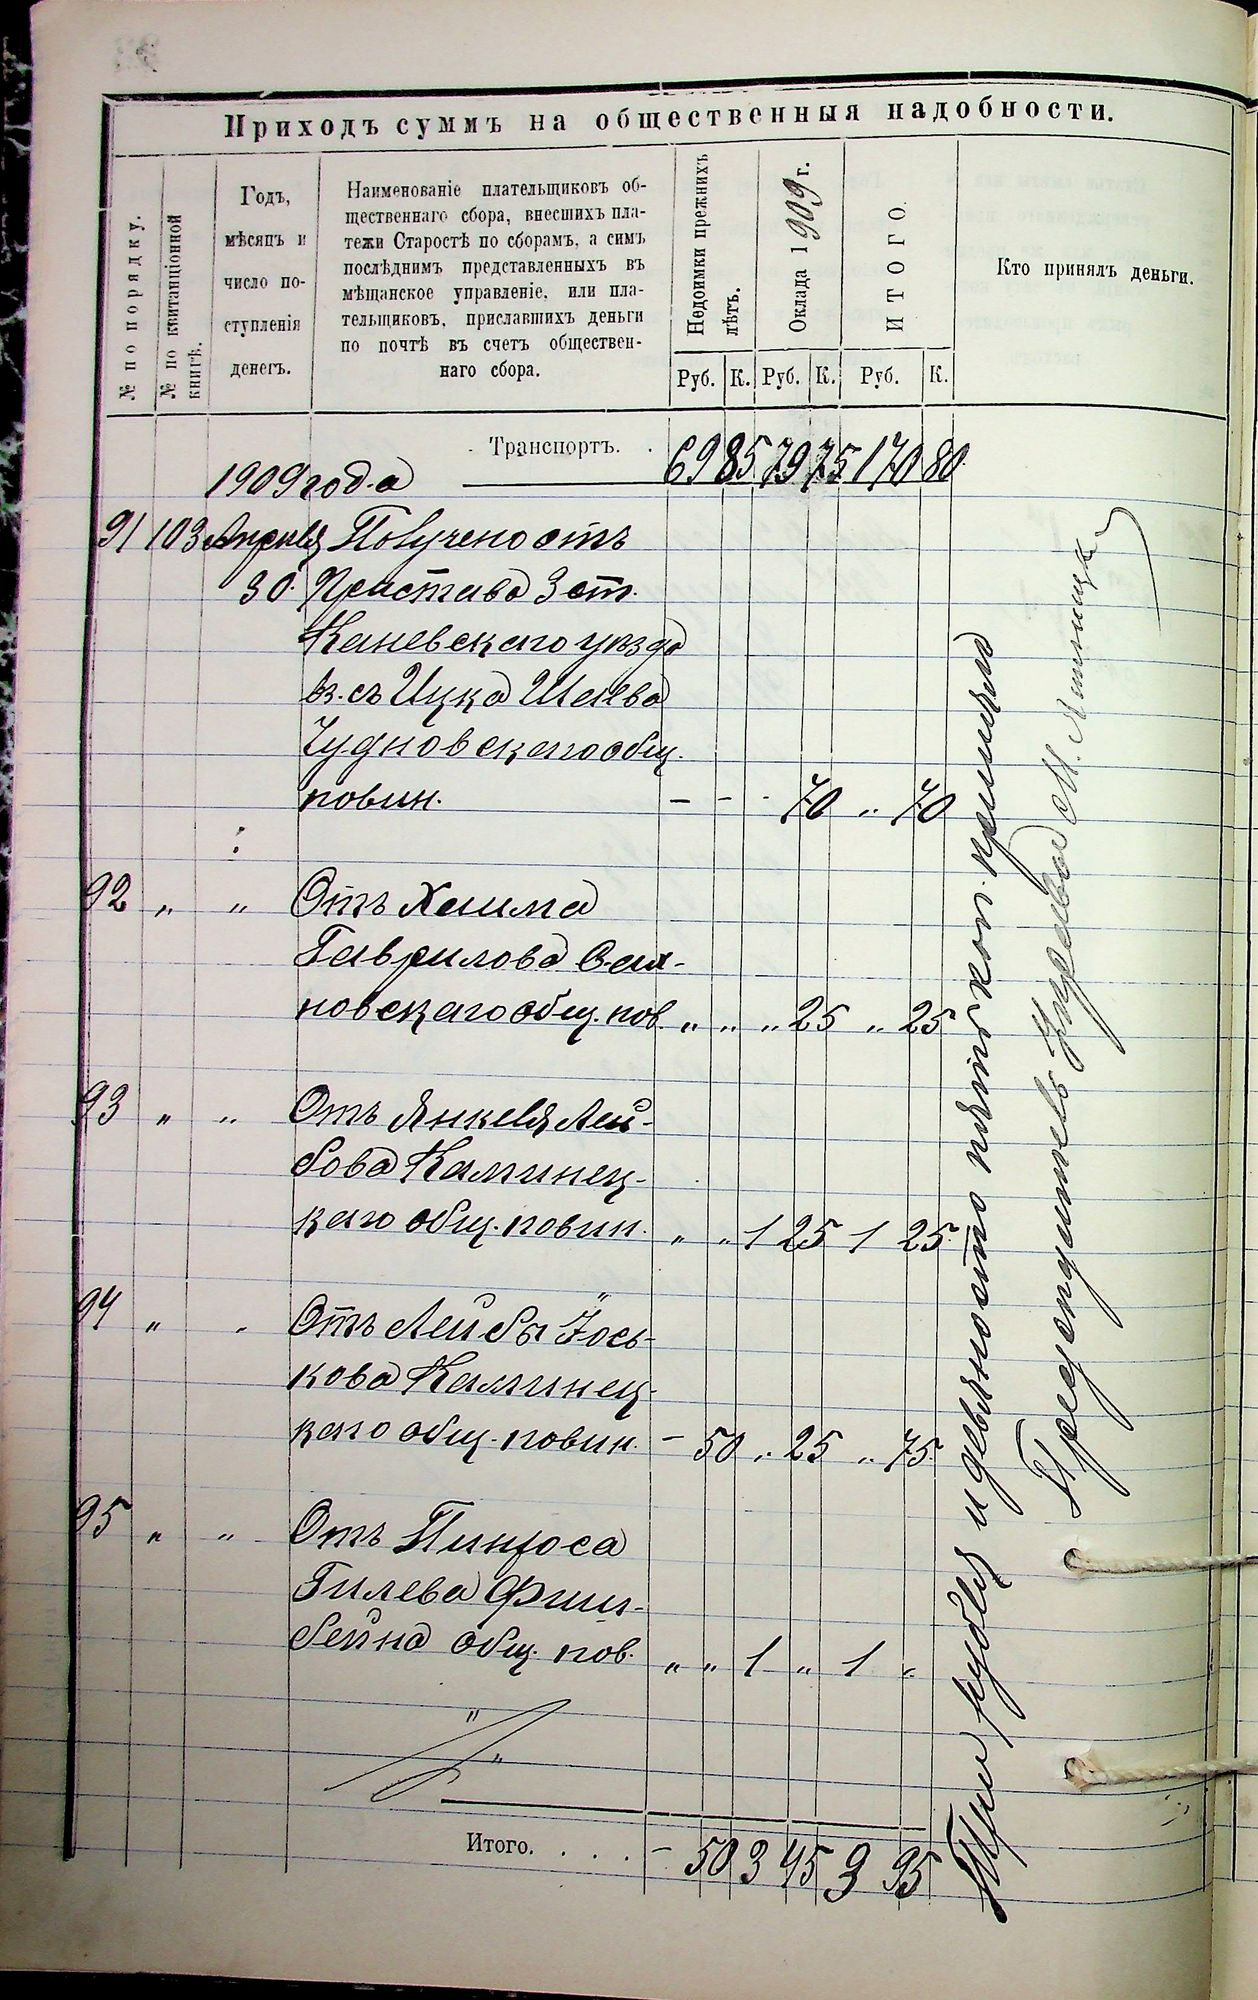 Приходъ суммъ на общественныя надобности.
№ по порядку.
№ по квитанціонной книгѣ.
Годъ,
мѣсяцъ и
число по-
ступленія
денегъ.
Наименованіе плательщиковъ об-
щественнаго сбора, внесшихъ пла-
тежи Старостѣ по сборамъ, а симъ
послѣднимъ представленныхъ въ
мѣщанское управленіе, или пла-
тельщиковъ, приславшихъ деньги
по почтѣ въ счетъ обществен-
наго сбора.
Недоимки прежнихъ лѣтъ.
Оклада 1909 г.
ИТОГО.
Кто принялъ деньги.
Руб. К. Руб. К. Руб. К.
Транспортъ. 69 85 79 75 170 80
1909 года
91 103 Апрѣля Получено отъ
30. Пристава 3 ст.
Каневскаго уѣзда
вз. съ Ицка Шаева
Чудновскаго общ.
повин. — - - 70 „ 70
92 „ „ Отъ Хаима
Гаврилова
новскаго общ. пов. „ „ „ 25 „ 25
93 „ „ Отъ Янкеля Лей-
бова Каминец-
каго общ. повин. „ „ 1 25 1 25
94 „ „ Отъ Лейбы Іось-
кова Каминец-
каго общ. повин. — 50 „ 25 „ 75
95 „ „ Отъ Пинхоса
Гилева Фиш-
бейна общ. пов. „ „ 1 „ 1 „
Итого. . . . . — 50 3 45 3 95
Три рубля и девяносто пять коп. принялъ